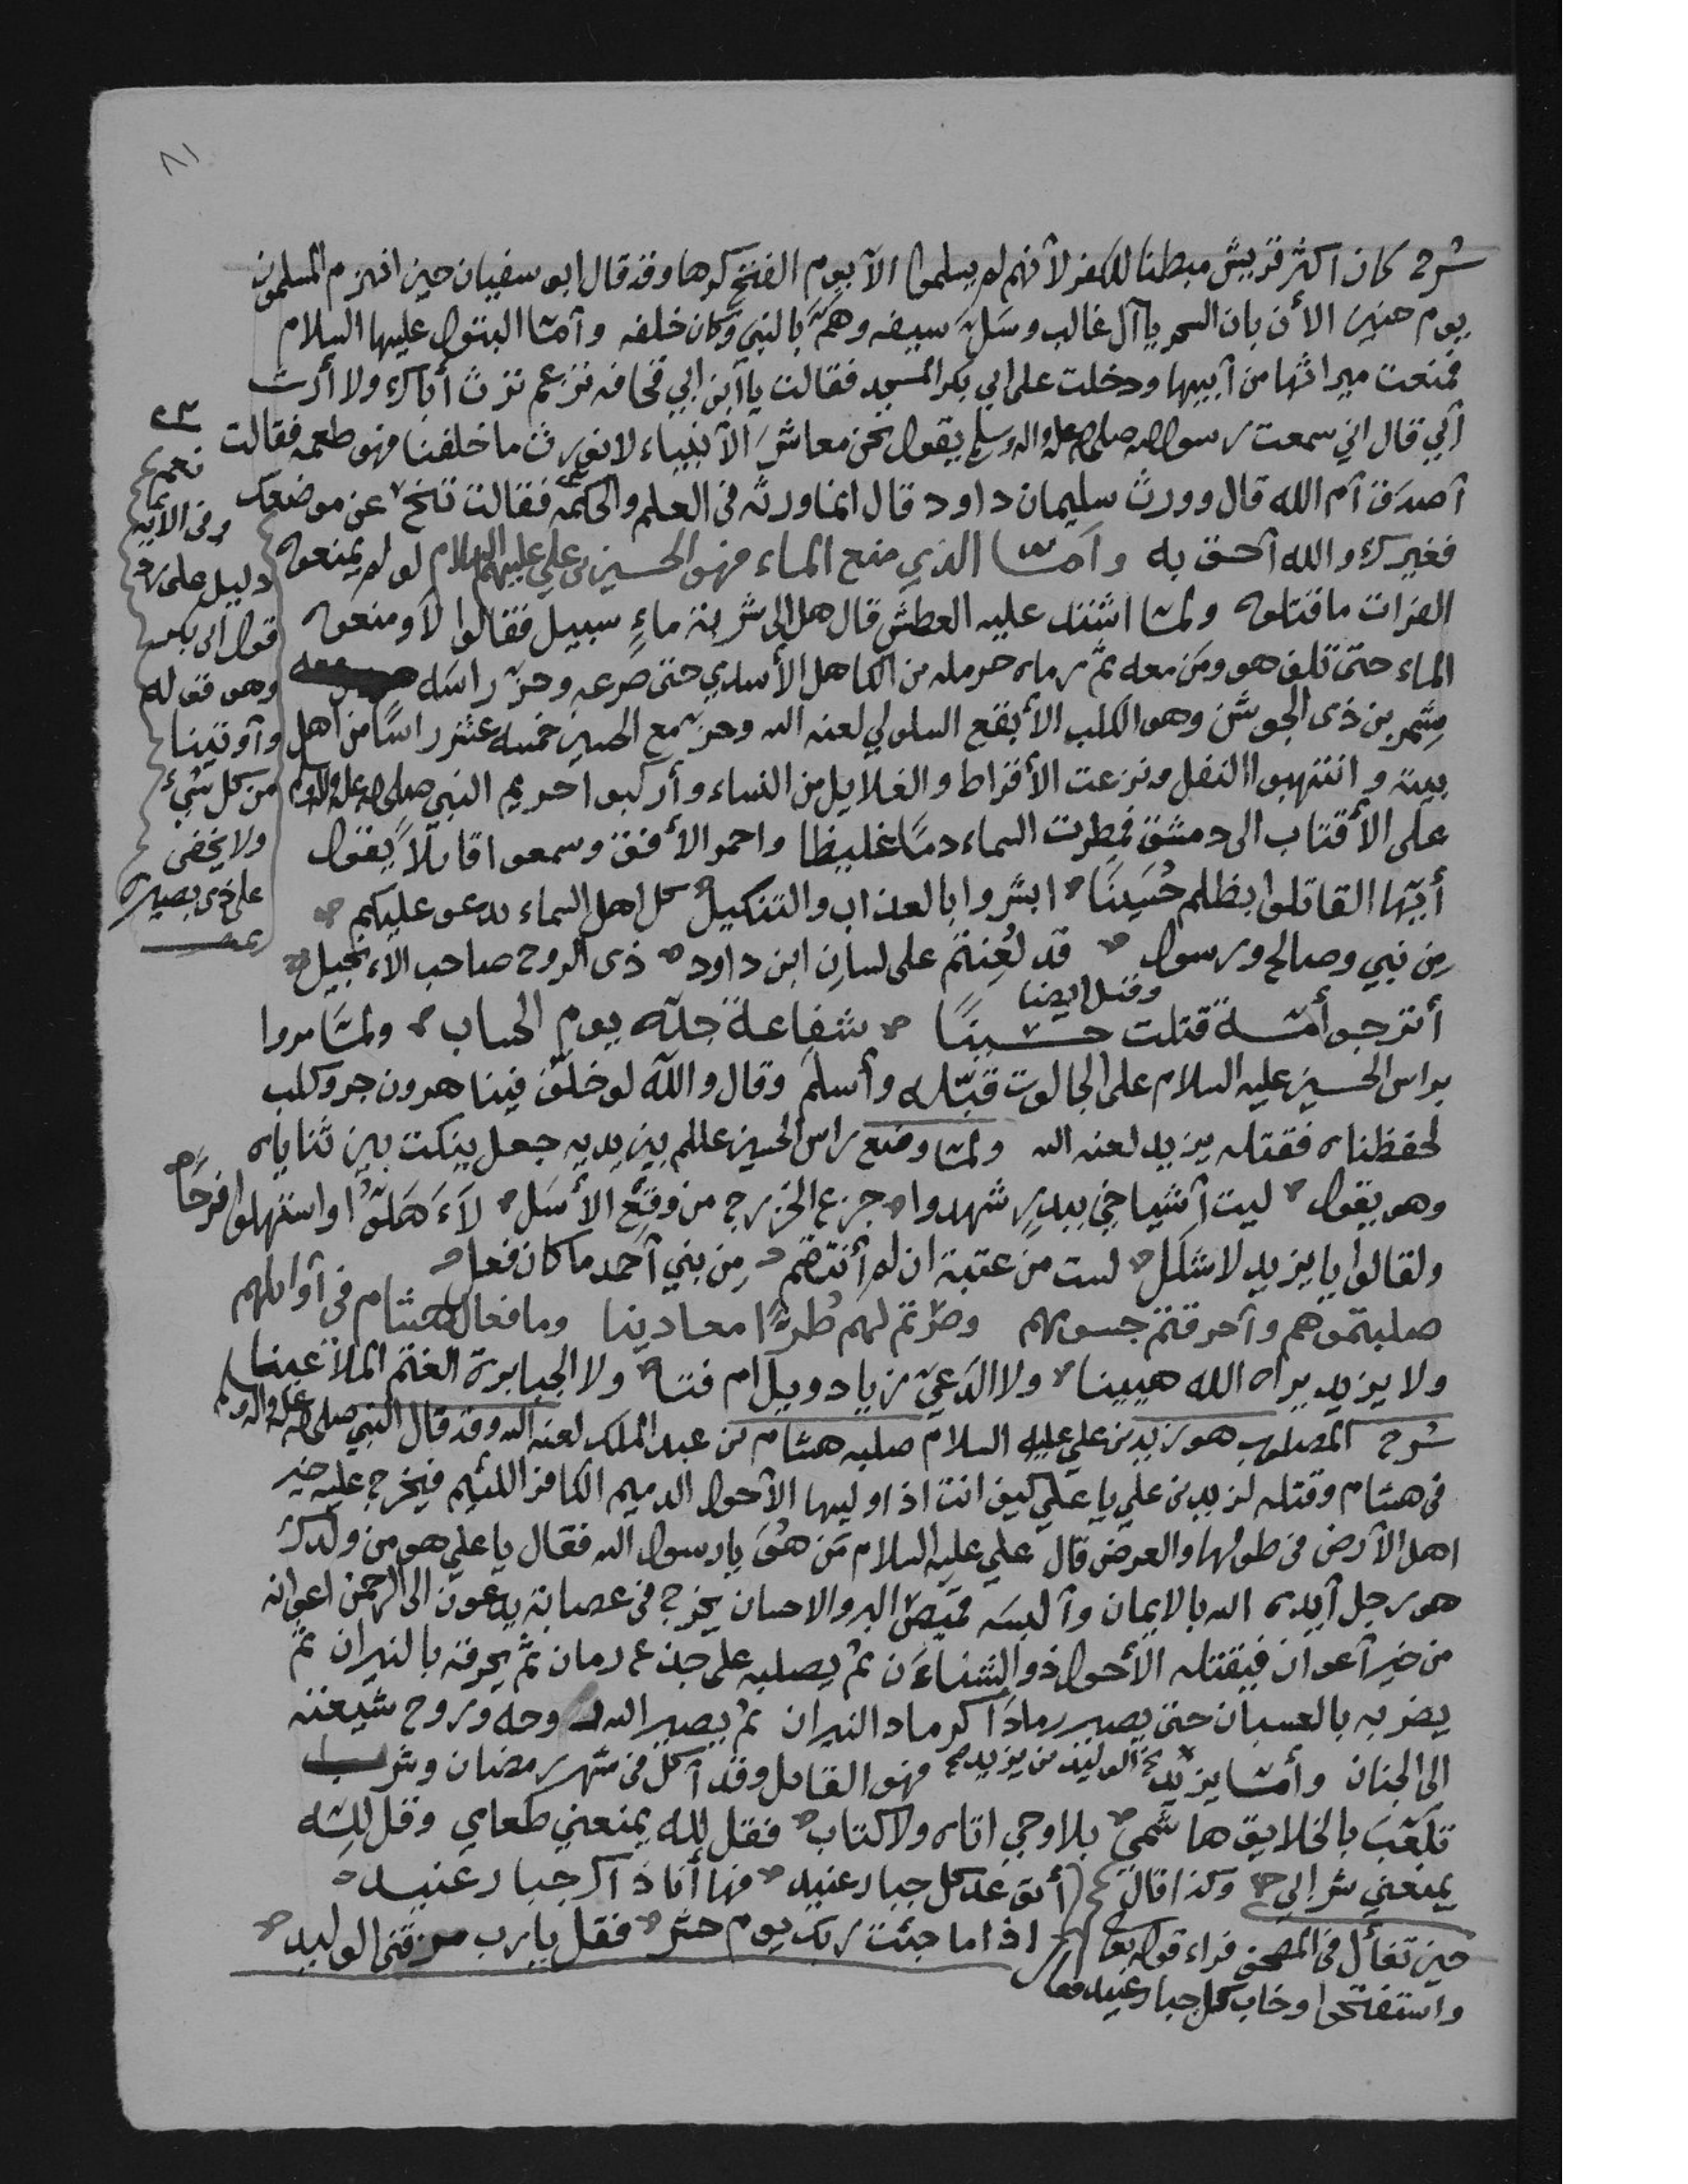 ٨١
شرح كان اكثر قريش مبطنا للكفر لانهم لم يسلموا الا يوم الفتح كرها وقد قال ابو سفيان حين انهزم المسلمون
يوم حنين الأن بان السحر يا آل غالب وسَلَّ سيفه وهَمَّ بالنبي وكان خلفه وأمّا البتول عليها السلام
فمنعت ميراثها من أبيها ودخلت على ابي بكر المسجد فقالت يا ابن ابي قحافه تزعم ترث أباك ولا أرث
أبي قال اني سمعت رسول الله صلى الله عليه واله وسلم يقول نحن معاشر الأنبياء لا نورث ما خلفنا فهو طعمه فقالت
أصدق أم الله قال وورث سليمان داود قال انما ورثه في العلم والحكمه فقالت تنح عن موضعك
فغيرك والله أحق به وأمّا الذي منع الماء فهو الحسين بن علي عليهم السلام لو لم يمنعوه
الفرات ما قتلوه ولمّا اشتد عليه العطش قال هل الى شربة ماءٍ سبيل فقالوا لا ومنعوه
الماء حتى تلف هو ومن معه ثم رماه حرمله بن الكاهل الأسدي حتى صرعه وحزّ راسه
شمر بن ذى الجوشن وهو الكلب الأبقع السلولي لعنه الله وحز مع الحسين خمسه عشر راسًا من اهل
بيته وانتهبوا الثقل ونزعت الأقراط والغلايل من النساء وأركبوا حريم النبي صلى الله عليه واله وسلم
على الأقتاب الى دمشق فمطرت السماء دمًا غليظا واحمر الأفق وسمعوا قايلاً يقول
أيّها القاتلوا بظلم حُسَينًا ابشروا بالعذاب والتنكيل كل اهل السماء يدعو عليكم
من نبي وصالح ورسول قد لُعِنتم على لسان ابن داود ذى الروح صاحب الانجيل
وقيل ايضا
أترجو أمّة قتلت حسينًا شفاعة جدّه يوم الحساب ولمّا مروا
براس الحسين عليه السلام على الجالوت قبّله وأسلم وقال والله لو خلّف فينا هرون جرو كلب
لحفظناه فقتله يزيد لعنه الله ولمّا وضع راس الحسين عللم بين يديه جعل ينكت بين ثناياه
وهو يقول ليت أشياخي ببدرٍ شهدوا جزع الخزرج من وقع الأسل لأهلّوا واستهلوا فرحًا
ولقالوا يا يزيد لا شلل لست من عتبة ان لم أنتقم من بني أحمد ما كان فعل
صلبتموهم وأحرقتم جسومهم وصرتم لهم طرًا معادينا وما فعال هشام في أوايلهم
ولا يزيد يراه الله هيينا ولا الدَعيّ زياد ويل ام فتا ولا الجبابرة الغتم الملاعينا
شرح المصلوب هو زيد بن علي عليه السلام صلبه هشام بن عبد الملك لعنه الله وقد قال النبي صلى الله عليه واله وسلم
في هشام وقتله لزيد بن علي يا علي كيف انت اذا وليها الأحول الدميم الكافر اللئيم فيخرج عليه خير
اهل الأرض في طولها والعرض قال علي عليه السلام مَن هُوَ يا رسول الله فقال يا علي هو من ولدك
هو رجل أيده الله بالايمان وألبسه قميص البر والاحسان يخرج في عصابة يدعون الى الرحمن اعوانه
من خير أعوان فيقتله الأحول ذو الشنآءن ثم يصلبه على جذع رمان ثم يحرقه بالنيران ثم
يضربه بالعسبان حتى يصير رمادا كرماد النيران ثم يصير الله روحه وروح شيعته
الى الجنان وأمّا يزيد الوليد بن يزيد فهو القايل وقد أكل في شهر رمضان وشرب
تلعّب بالخلايق هاشميٌ بلا وحي اتاه ولا كتاب فقل لله يمنعني طعامي وقل لله
يمنعني شرابي وكذا قال أتوعد كل جبار عنيد فها أنا ذاك جبار عنيد
حين تفأل في المصحف فراء قوله تعالى اذا ما جئت ربك يوم حشر فقل يا رب مزقني الوليد
واستفتحوا وخاب كل جبار عنيد فقال
نعم
وفي الآيه
دليل على رد
قول ابي بكر
وهو قوله
وأوتينا
من كل شيءٍ
ولا يخفى
على ذى بصيره